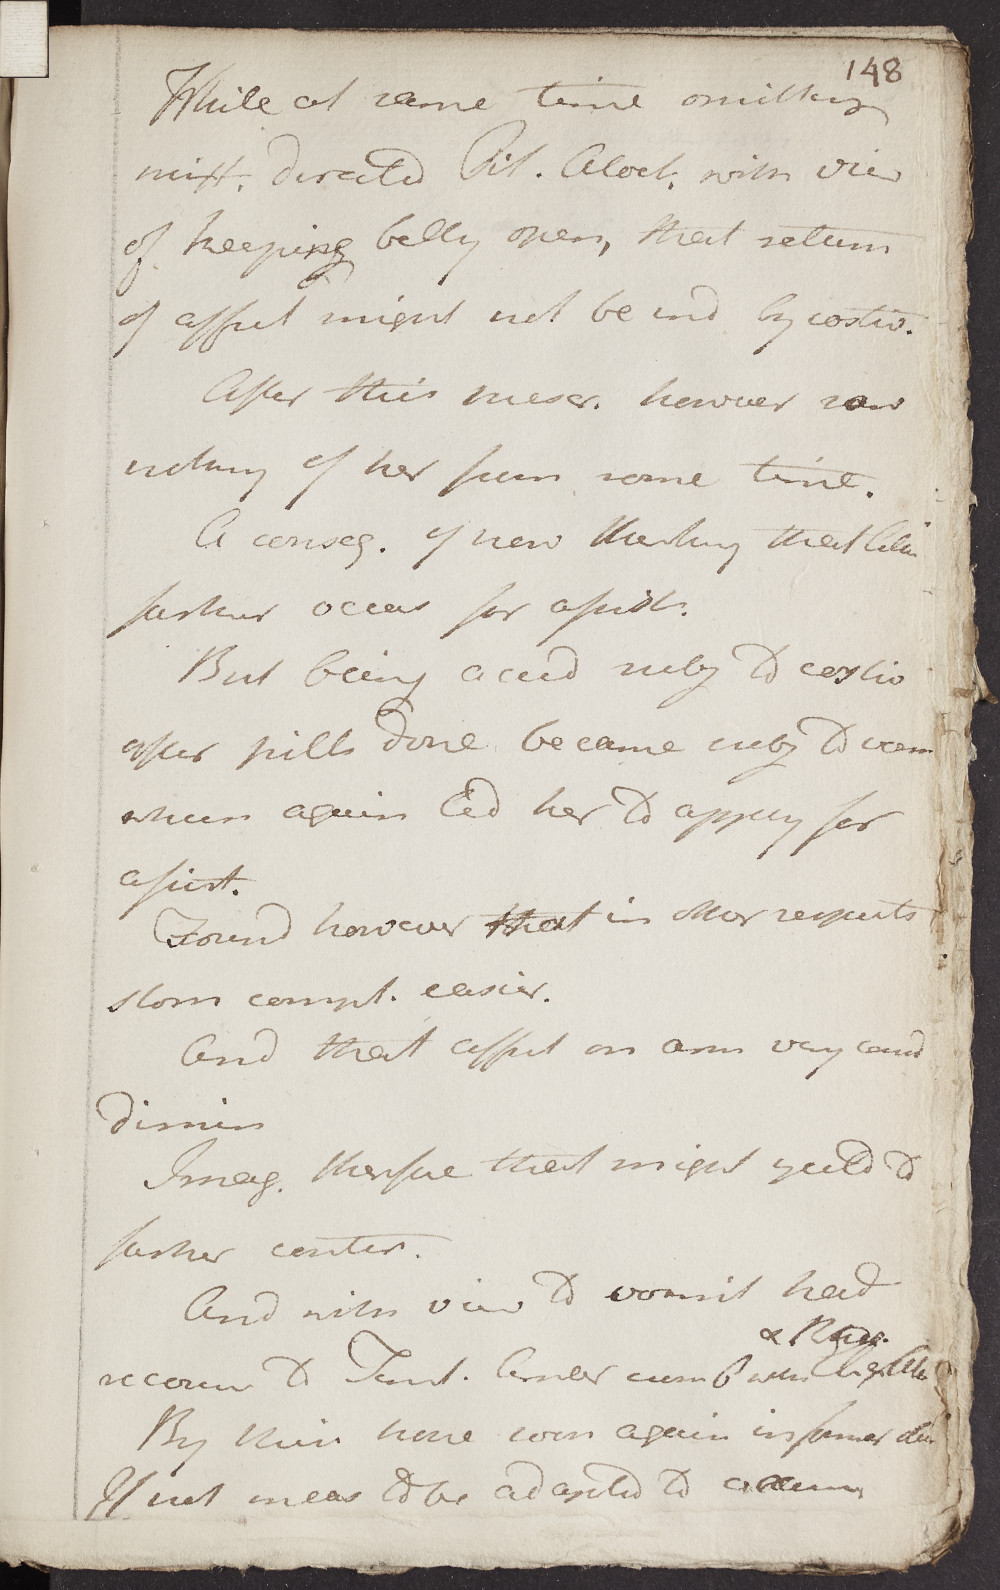 148
While at same time omitting
mixt. directed Pil. Aloet. with view
of keeping belly open, that return
of affect might not be ind by costiv.
After this mesr. however saw
nothing of her for some time.
A conseq. of now thinking that
farther occas for assist.
But being accud subj to costiv
after pills done became subj to vom
whien again led her to apply for
assist.
Found however that in other respects
stom compt. easier.
And that affect on arm very cond
dimin
Imag. therfore that might yeeld to
farther contin.
And with view to vomit had
& Rhei.
recour to Tinct. Amar cum with
By this hope soon again in former
If not meas to be adapted to